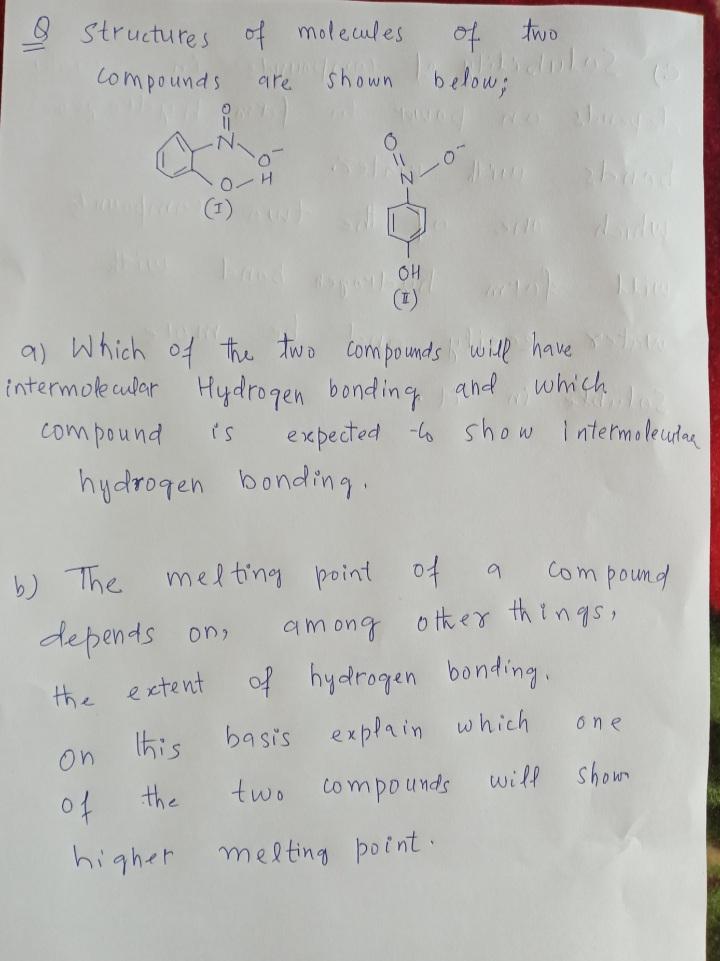 Q Structures of molecules of two
compounds are shown below;
O
N
O⁻
O-H
(I)
O
N
O⁻
OH
(II)
a) Which of the two compounds will have
intermolecular Hydrogen bonding and which
compound is expected to show intermolecular
hydrogen bonding.
b) The melting point of a compound
depends on, among other things,
the extent of hydrogen bonding.
on this basis explain which one
of the two compounds will show
higher melting point.